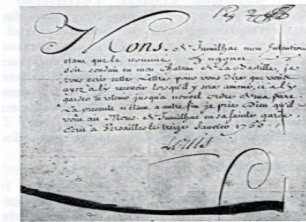 Mons. de Jumilhac mon Intention
étant que le nommé
soit conduit en mon château de La Bastille, je
vous écris cette Lettre pour vous Dire que vous
ayez a l'y recevoir lorsqu'il y sera amené, et a l'y
garder et retenir jusqu'à nouvel ordre de ma part.
La présente n'étant a autre fin je prie Dieu qu'il
vous ait Mons. de Jumilhac en sa sainte garde.
Ecrit a Versailles le treize Janvier
Louis